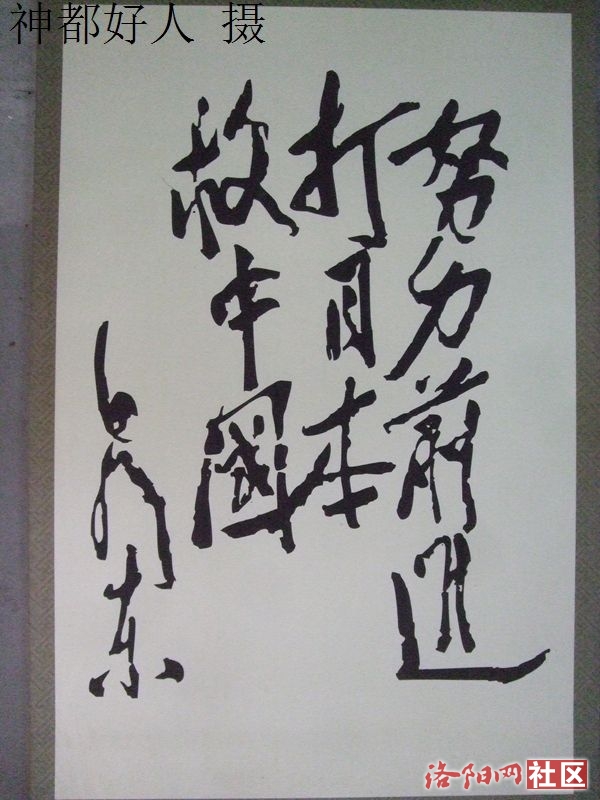 神都好人 摄
努力前進
打日本
救中國
毛澤東
洛阳网社区